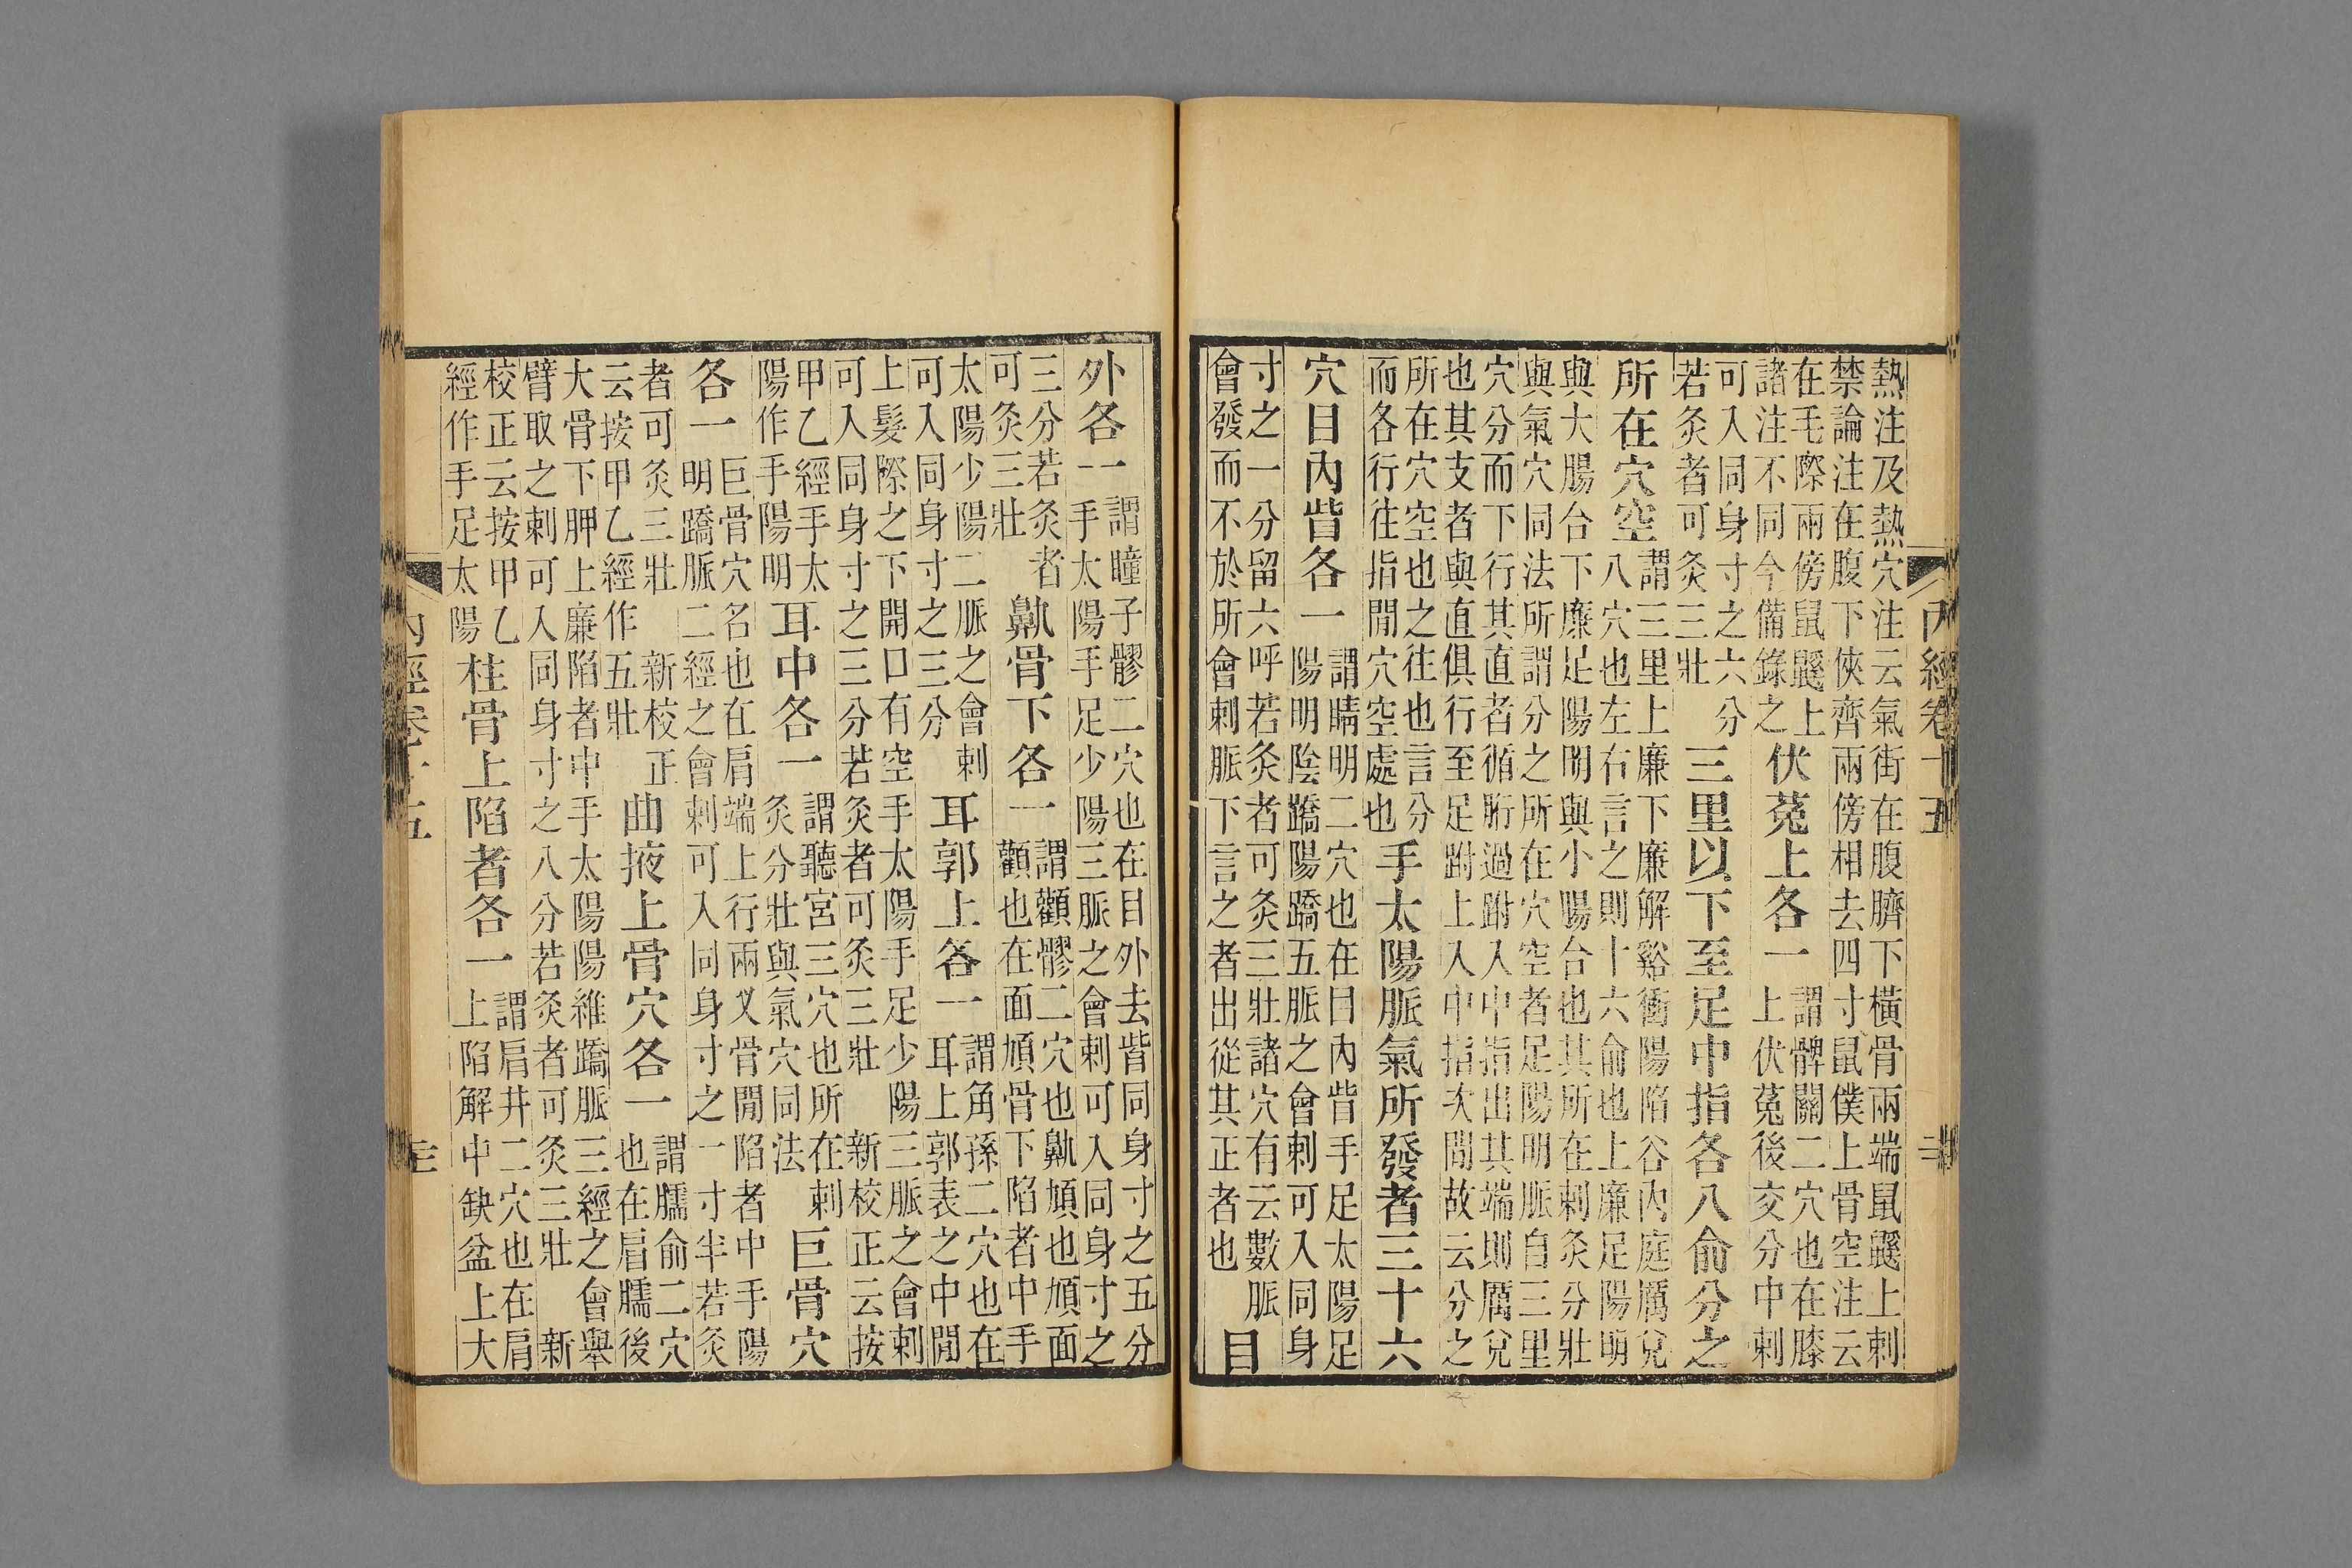 內經卷十五
熱注及熱穴注云氣街在腹臍下橫骨兩端鼠鼷上刺
禁論注在腹下俠齊兩傍相去四寸鼠僕上骨空注云
在毛際兩傍鼠鼷上
諸注不同今備錄之
伏菟上各一
謂髀關二穴也在膝
上伏菟後交分中刺
可入同身寸之六分
若灸者可灸三壯
三里以下至足中指各八俞分之
所在穴空
謂三里上廉下廉解谿衝陽陷谷內庭厲兌
八穴也左右言之則十六俞也上廉足陽明
與大腸合下廉足陽明與小陽合也其所在刺灸分壯
與氣穴同法所謂分之所在穴空者足陽明脈自三里
穴分而下行其直者循胻過跗入中指出其端則厲兌
也其支者與直俱行至足跗上入中指次間故云分之
所在穴空也之往也言分
而各行往指間穴空處也
手太陽脈氣所發者三十六
穴目內眥各一
謂睛明二穴也在目內眥手足太陽足
陽明陰蹻陽蹻五脈之會刺可入同身
寸之一分留六呼若灸者可灸三壯諸穴有云數脈
會發而不於所會刺脈下言之者出從其正者也
目
外各一
謂瞳子髎二穴也在目外去眥同身寸之五分
手太陽手足少陽三脈之會刺可入同身寸之
三分若灸者
可灸三壯
鼽骨下各一
謂顴髎二穴也鼽頄也頄面
顴也在面頄骨下陷者中手
太陽少陽二脈之會刺
可入同身寸之三分
耳郭上各一
謂角孫二穴也在
耳上郭表之中間
上髮際之下開口有空手太陽手足少陽三脈之會刺
可入同身寸之三分若灸者可灸三壯 新校正云按
甲乙經手太
陽作手陽明
耳中各一
謂聽宮三穴也所在刺
灸分壯與氣穴同法
巨骨穴
各一
巨骨穴名也在肩端上行兩叉骨間陷者中手陽
明蹻脈二經之會刺可入同身寸之一寸半若灸
者可灸三壯 新校正
云按甲乙經作五壯
曲掖上骨穴各一
謂臑俞二穴
也在肩臑後
大骨下胛上廉陷者中手太陽陽維蹻脈三經之會舉
臂取之刺可入同身寸之八分若灸者可灸三壯 新
校正云按甲乙
經作手足太陽
柱骨上陷者各一
謂肩井二穴也在肩
上陷解中缺盆上大
內經卷十五